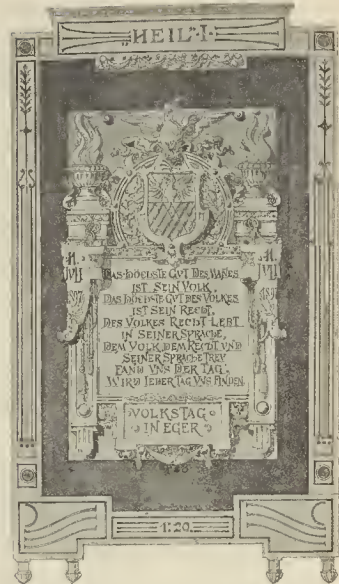 „HEIL"·I·
11.
IVLI
1897
DAS HÖCHSTE GVT DES MANES
IST SEIN VOLK,
DAS HÖCHSTE GVT DES VOLKES
IST SEIN RECHT,
DES VOLKES RECHT LEBT
IN SEINER SPRACHE,
DEM VOLK, DEM RECHT VND
SEINER SPRACHE TREV
FAND VNS DER TAG,
WIRD JEDER TAG VNS FINDEN.
11.
IVLI
1897
VOLKSTAG
IN EGER
1:20.